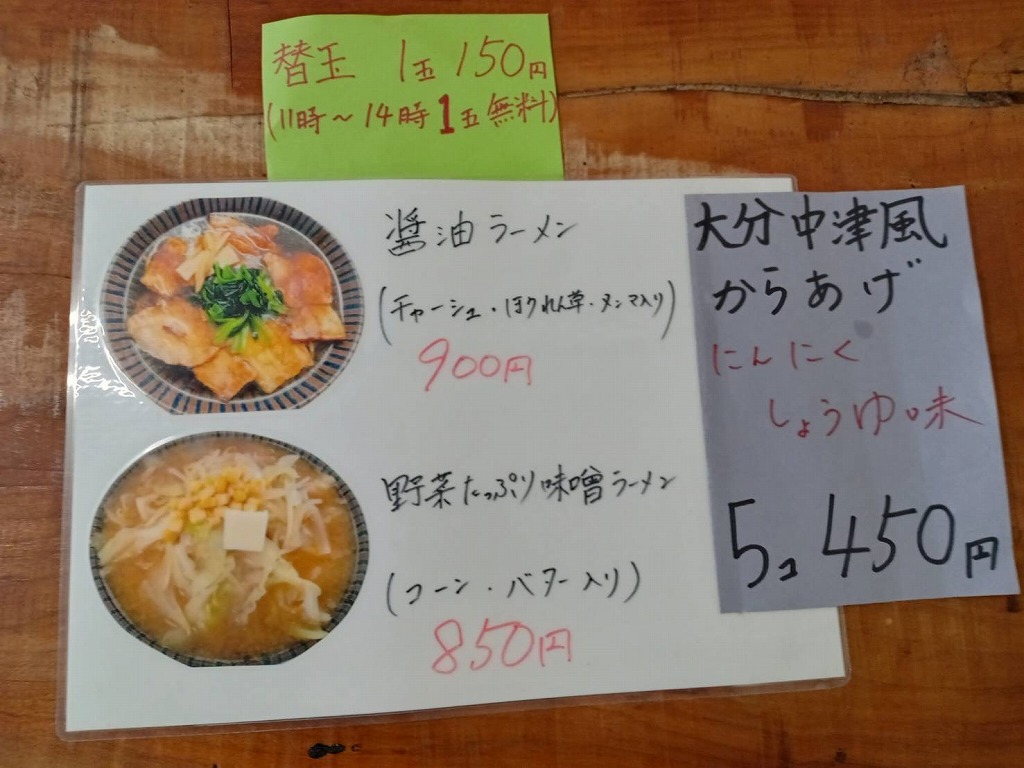 替玉 1玉150円
(11時～14時1玉無料)
醤油ラーメン
(チャーシュ・ほうれん草・メンマ入り)
900円
野菜たっぷり味噌ラーメン
(コーン・バター入り)
850円
大分中津風
からあげ
にんにく
しょうゆ味
5コ 450円